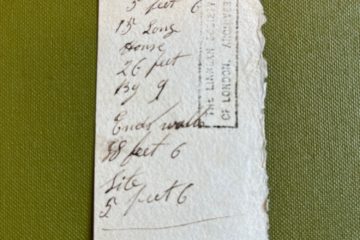 5 feet 6
15 Long
House
26 feet
By 9
Ends walls
18 feet 6
Site
5 feet 6
THE LINNEAN SOCIETY
OF LONDON. ARCHIVES